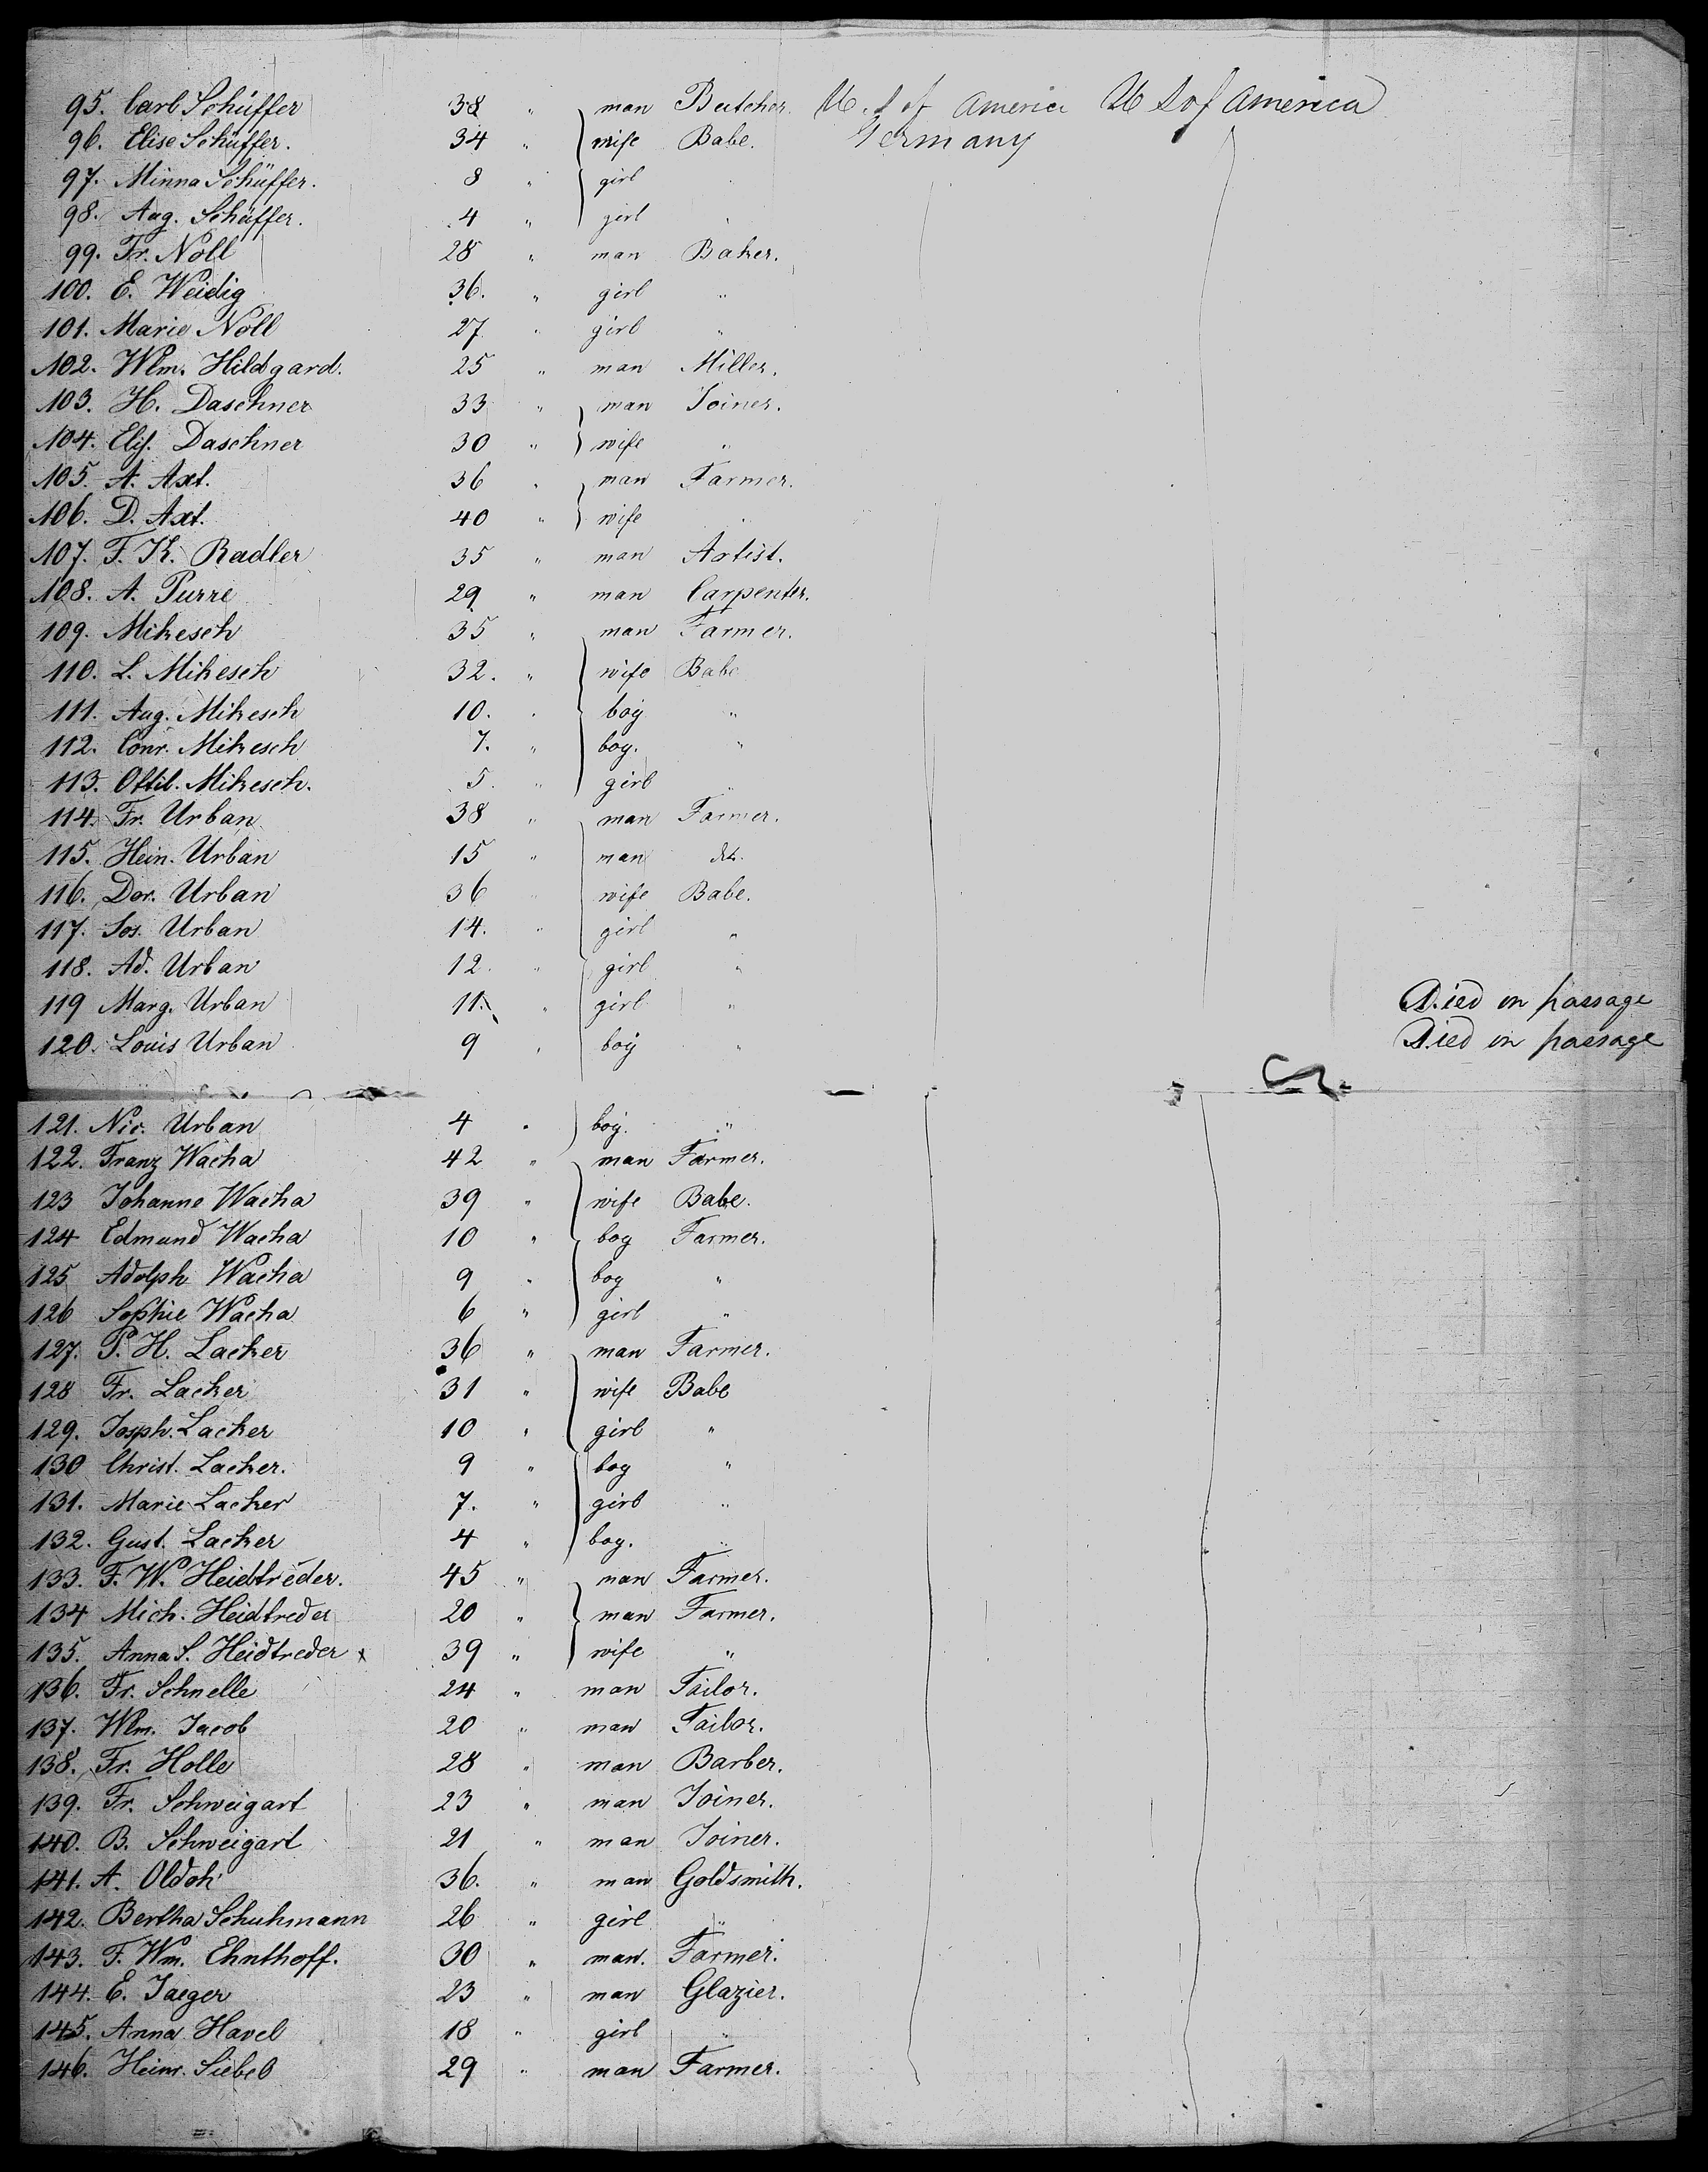 95. Carl Schüffer 38 " man Butcher. U. S of America U S of America
96. Elise Schüffer. 34 " wife Babe. Germany
97. Minna Schüffer. 8 " girl "
98. Aug. Schüffer. 4 " girl "
99. Fr. Noll 28 " man Baker.
100. E. Weidig 36. " girl "
101. Marie Noll 27 " girl "
102. Wlm. Hildgard. 25 " man Miller.
103. H. Daschner 33 " man Joiner.
104. Elis. Daschner 30 " wife "
105. A. Axt. 36 " man Farmer.
106. D. Axt. 40 " wife "
107. F. K. Radler 35 " man Artist.
108. A. Purre 29 " man Carpenter.
109. Mikesch 35 " man Farmer.
110. L. Mikesch 32. " wife Babe
111. Aug. Mikesch 10. " boy "
112. Conr. Mikesch 7. " boy. "
113. Ottil. Mikesch. 5. " girl "
114. Fr. Urban 38 " man Farmer.
115. Hein. Urban 15 " man do.
116. Dor. Urban 36 " wife Babe.
117. Jos. Urban 14. " girl "
118. Ad. Urban 12. " girl "
119 Marg. Urban 11. " girl " Died on passage
120. Louis Urban 9 " boy " Died on passage
121. Nic. Urban 4 " boy. "
122. Franz Wacha 42 " man Farmer.
123 Johanne Wacha 39 " wife Babe.
124 Edmund Wacha 10 " boy Farmer.
125 Adolph Wacha 9 " boy "
126 Sophie Wacha 6 " girl "
127. P. H. Lacker 36 " man Farmer.
128 Fr. Lacker 31 " wife Babe
129. Josph. Lacker 10 " girl "
130 Christ. Lacker. 9 " boy "
131. Marie Lacker 7. " girl "
132. Gust. Lacker 4 " boy. "
133. F. W. Heidtreder. 45 " man Farmer.
134 Mich. Heidtreder 20 " man Farmer.
135. Anna S. Heidtreder x 39 " wife "
136. Fr. Schnelle 24 " man Tailor.
137. Wlm. Jacob 20 " man Tailor.
138. Fr. Holle 28 " man Barber.
139. Fr. Schweigart 23 " man Joiner.
140. B. Schweigart 21 " man Joiner.
141. A. Oldoh 36. " man Goldsmith.
142. Bertha Schuhmann 26 " girl "
143. F. Wm. Ehnthoff. 30 " man. Farmer.
144. E. Jaeger 23 " man Glazier.
145. Anna Havel 18 " girl "
146. Heinr. Siebel 29 " man Farmer.